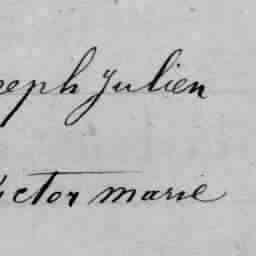 seph Julien
ictor marie